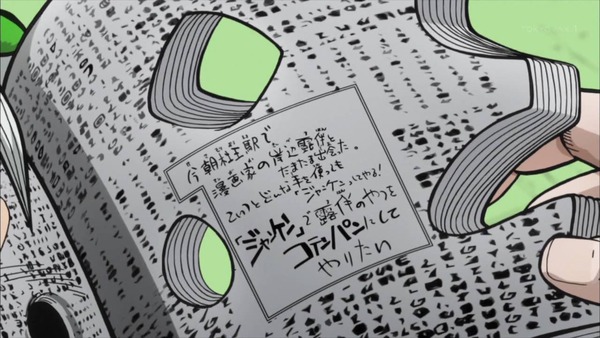 今朝杜王駅で
漫画家の岸辺露伴と
たまたま出会った。
こいつとどんな手を使っても
「ジャンケン」してやる!
「ジャンケン」で露伴のやつを
コテンパンにして
やりたい